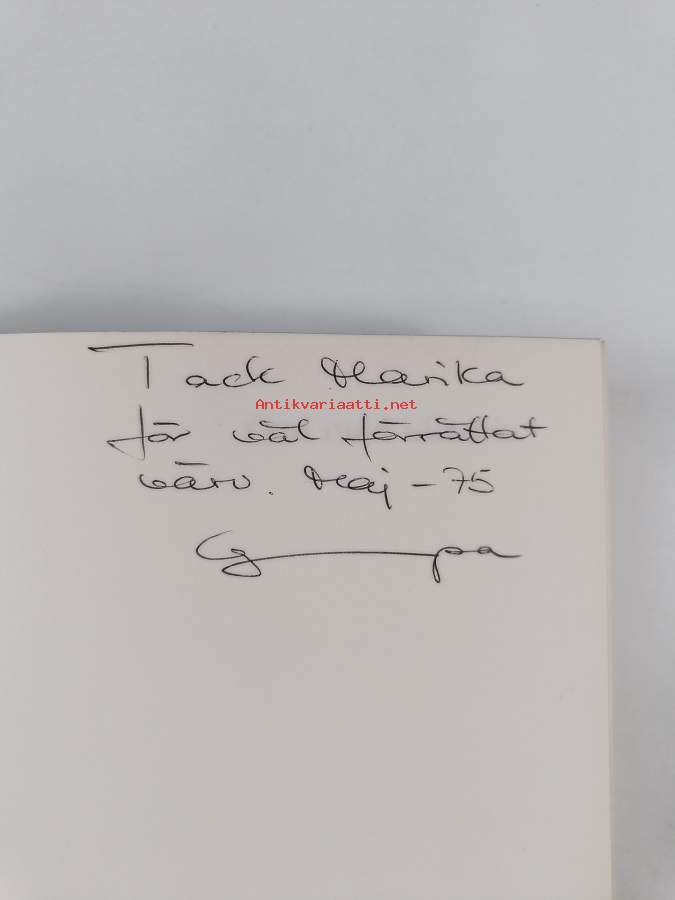 Tack Marika
Antikvariaatti.net
för väl förrättat
värv. Maj - 75